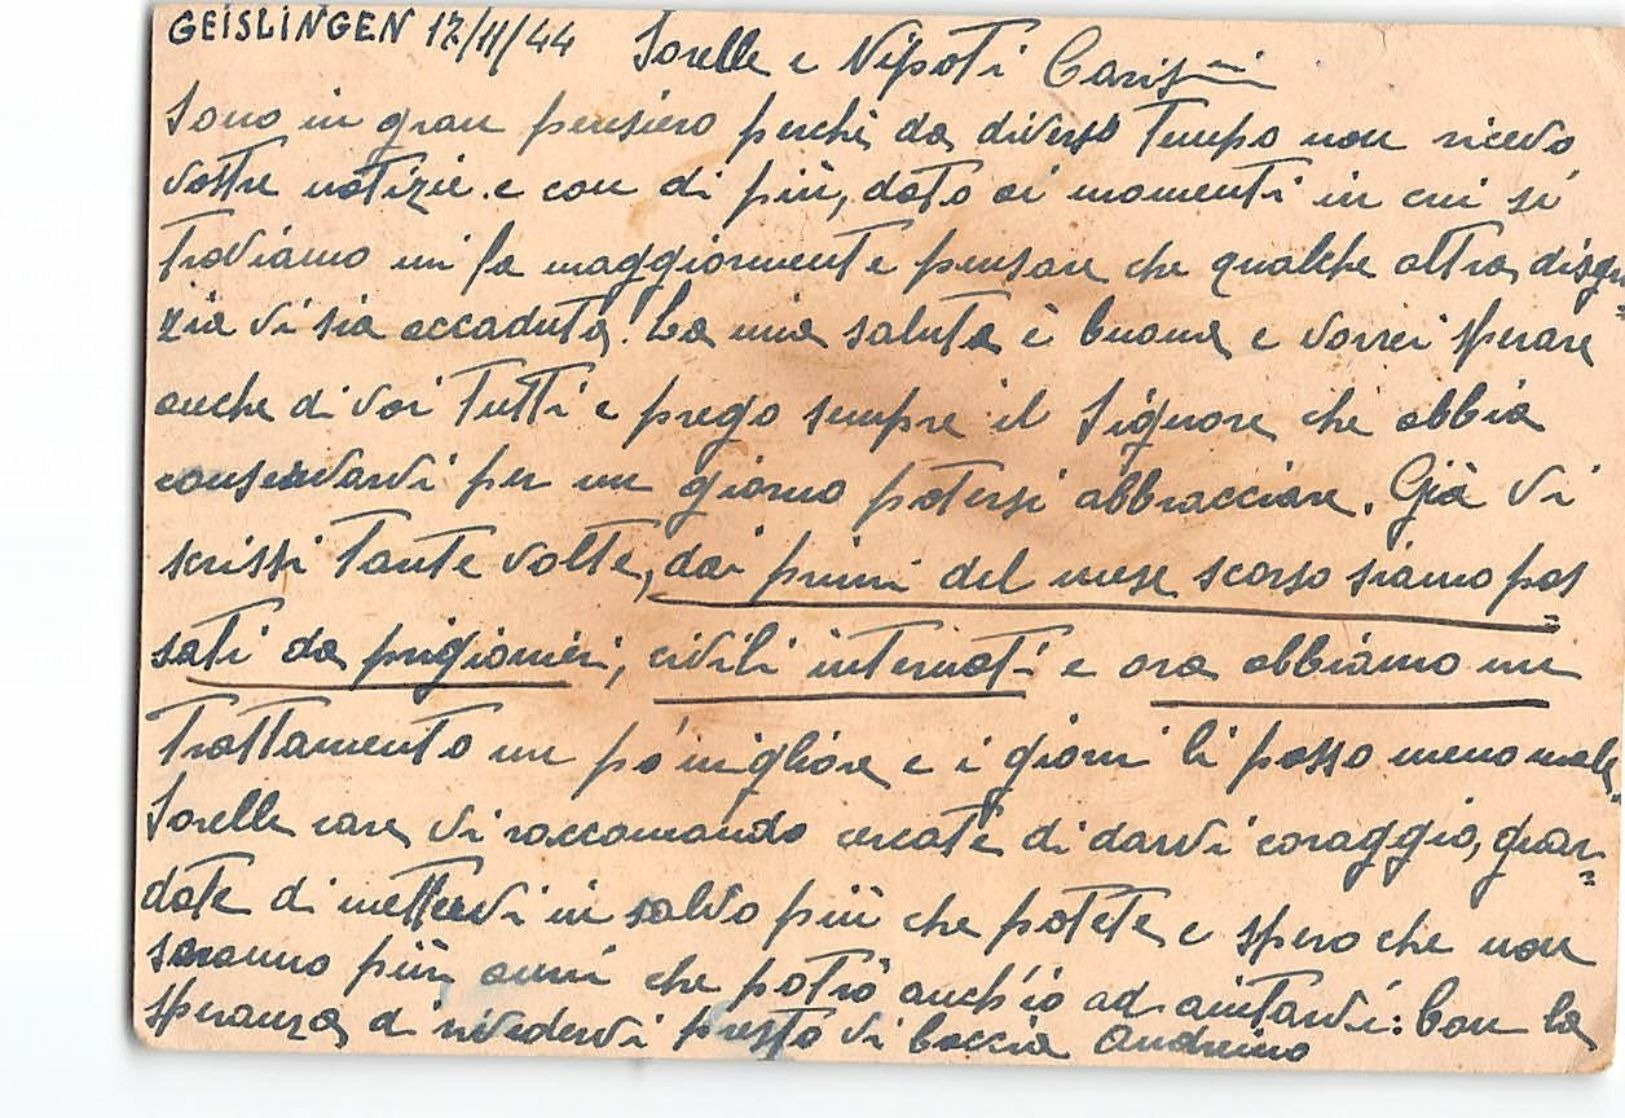 GEISLINGEN 17/11/44 Sorelle e Nipoti Cariss—mi
Sono in gran pensiero perchè da diverso tempo non ricevo
vostre notizie e con di più, dato ai momenti in cui si
troviamo mi fa maggiormente pensare che qualche altra disgra=
zia vi sia accaduta! La mia saluta è buona e vorrei sperare
anche di voi tutti e prego sempre il Signore che abbia
conservarvi per un giorno potersi abbracciare. Già vi
scrissi tante volte, dai primi del mese scorso siamo pas=
sati da prigionieri, civili internati e ora abbiamo un
trattamento un pó migliore e i giorni li passo meno male.
Sorelle care vi raccomando cercate di darvi coraggio, guar=
date di mettervi in salvo più che potete e spero che non
saranno più anni che potrò anch'io ad aiutarvi: Con la
speranza di rivedervi presto vi baccia Andreino